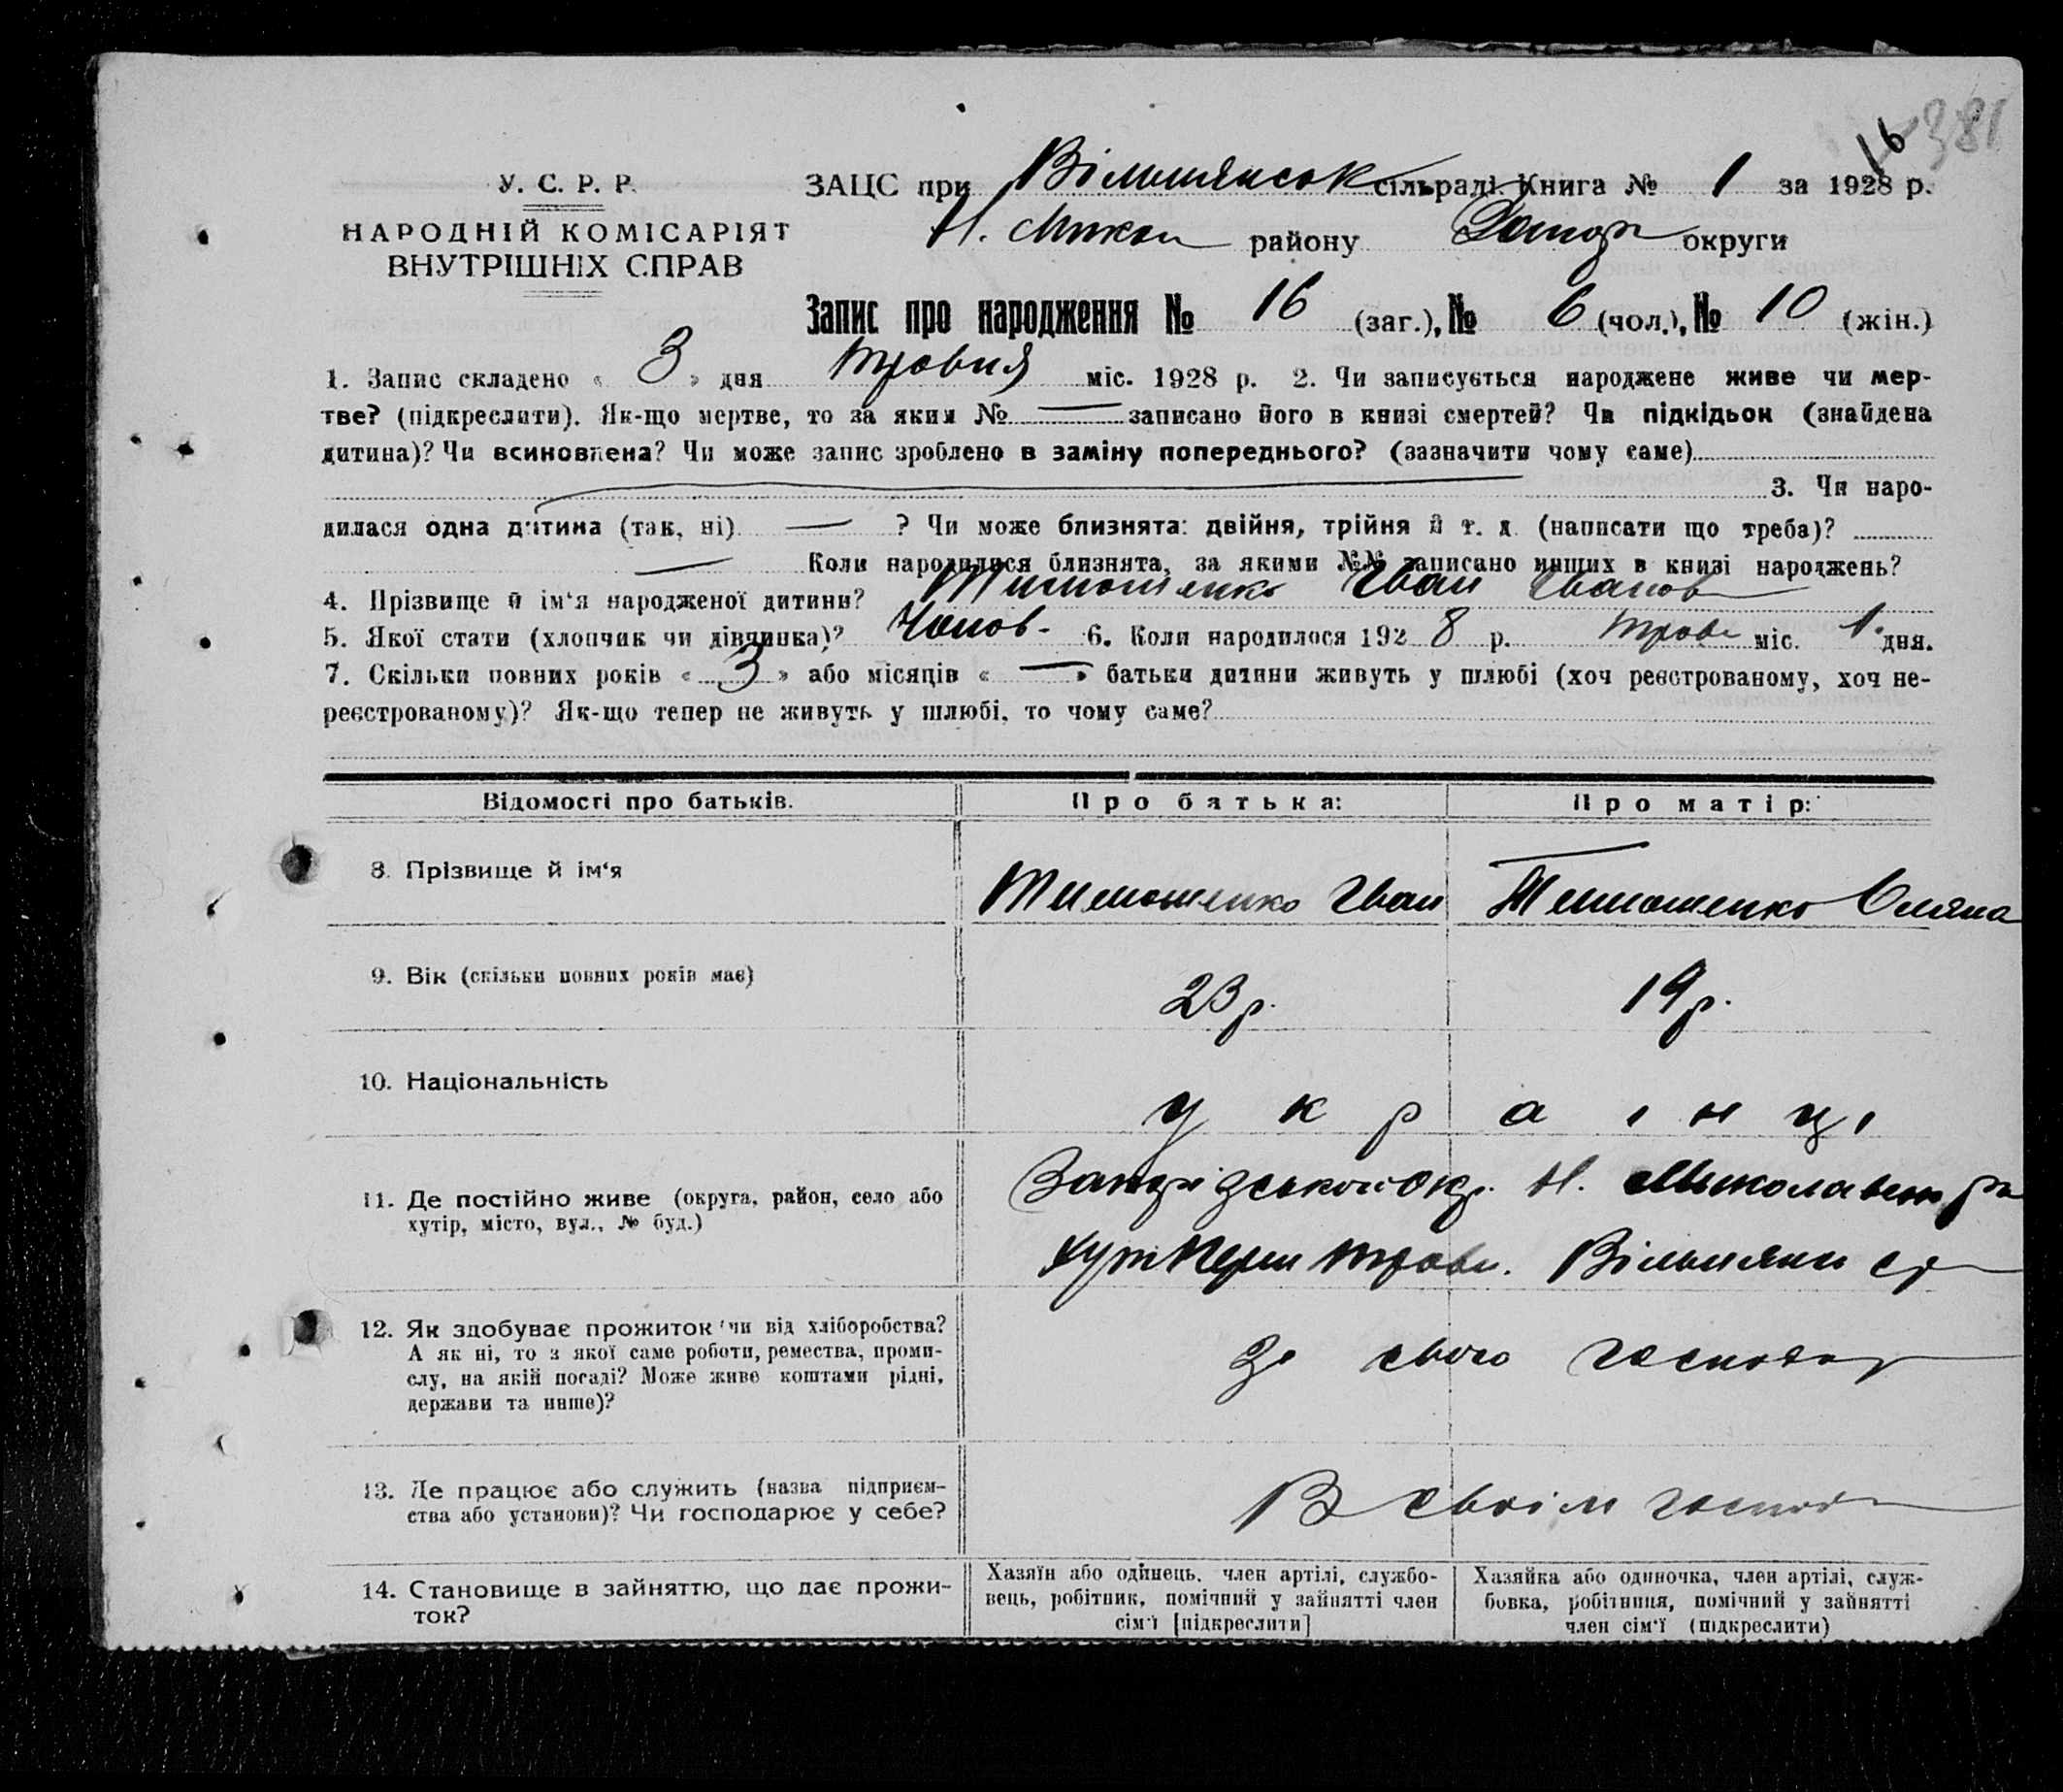 16 381
У. С. Р. Р.
НАРОДНІЙ КОМІСАРІЯТ
ВНУТРІШНІХ СПРАВ
ЗАЦС при Вільшянськ сільраді. Книга № 1 за 1928 р.
Н. Микол району Запор округи
Запис про народження № 16 (заг.), № 6 (чол.), № 10 (жін.)
1. Запис складено « 3 » дня травня міс. 1928 р. 2. Чи записується народжене живе чи мер-
тве? (підкреслити). Як-що мертве, то за яким № — записано його в книзі смертей? Чи підкідьок (знайдена
дитина)? Чи всиновлена? Чи може запис зроблено в заміну попереднього? (зазначити чому саме)
3. Чи наро-
дилася одна дитина (так, ні) — ? Чи може близнята: двійня, трійня й т. д. (написати що треба)?
— Коли народилися близнята, за якими №№ записано инших в книзі народжень?
4. Прізвище й ім‘я народженої дитини? Тимошенко Іван Іванов
5. Якої стати (хлопчик чи дівчинка)? Чолов- 6. Коли народилося 192 8 р. трав міс. 1 дня.
7. Скільки повних років « 3 » або місяців « — » батьки дитини живуть у шлюбі (хоч реєстрованому, хоч не-
реєстрованому)? Як-що тепер не живуть у шлюбі, то чому саме?
Відомості про батьків. Про батька: Про матір:
8. Прізвище й ім‘я Тимошенко Іван Тимошенко Оляна
9. Вік (скільки повних років має) 23 р. 19 р.
10. Національність українці
11. Де постійно живе (округа, район, село або
хутір, місто, вул., № буд.)
Запорізської Окр. Н. Миколаевск ра
хут Перш Травн. Вільшянськ ср
12. Як здобуває прожиток чи від хліборобства?
А як ні, то з якої саме роботи, ремества, проми-
слу, на якій посаді? Може живе коштами рідні,
держави та инше)?
Зо свого господар
13. Де працює або служить (назва підприєм-
ства або установи)? Чи господарює у себе?
В своїм господ
14. Становище в зайняттю, що дає прожи-
ток?
Хазяїн або одинець, член артілі, службо-
вець, робітник, помічний у зайнятті член
сім‘ї [підкреслити]
Хазяйка або одиночка, член артілі, служ-
бовка, робітниця, помічний у зайнятті
член сім‘ї (підкреслити)